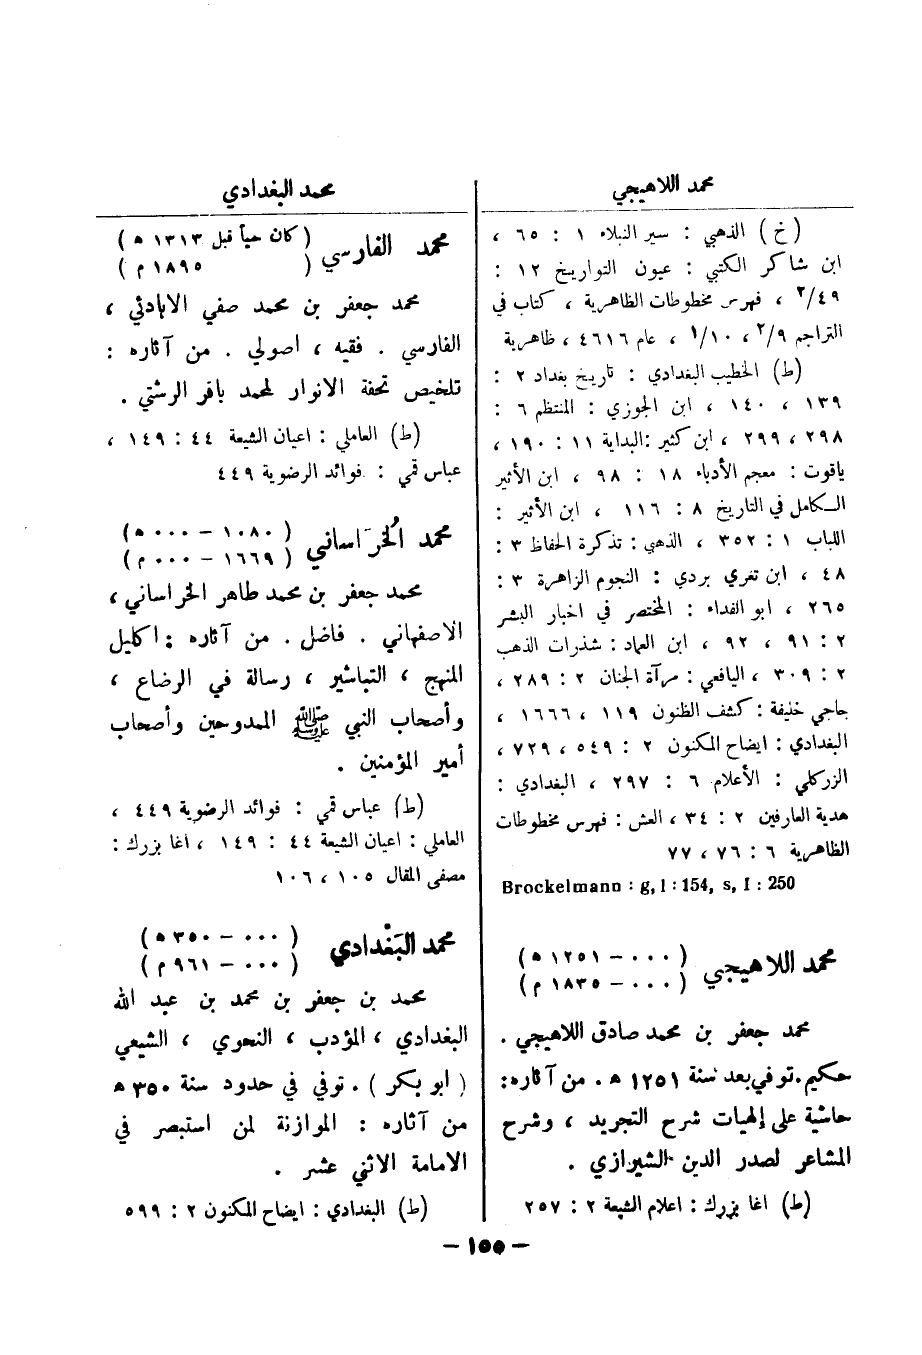 محمد اللاهيجي
(خ) الذهبي : سير النبلاء ١ : ٦٥ ،
ابن شاكر الكتبي : عيون التواريخ ١٢ :
٢/٤٩ ، فهرس مخطوطات الظاهرية ، كتاب في
التراجم ٢/٩ ، ١/١٠ ، عام ٤٦١٦ ، ظاهرية
(ط) الخطيب البغدادي : تاريخ بغداد ٢ :
١٣٩ ، ١٤٠ ، ابن الجوزي : المنتظم ٦ :
٢٩٨ ، ٢٩٩ ، ابن كثير : البداية ١١ : ١٩٠ ،
ياقوت : معجم الأدباء ١٨ : ٩٨ ، ابن الأثير
الكامل في التاريخ ٨ : ١١٦ ، ابن الأثير :
اللباب ١ : ٣٥٢ ، الذهبي : تذكرة الحفاظ ٣ :
٤٨ ، ابن تغري بردي : النجوم الزاهرة ٣ :
٢٦٥ ، ابو الفداء : المختصر في اخبار البشر
٢ : ٩١ ، ٩٢ ، ابن العماد : شذرات الذهب
٢ : ٣٠٩ ، اليافعي : مرآة الجنان ٢ : ٢٨٩ ،
حاجي خليفة : كشف الظنون ١١٩ ، ١٦٦٦ ،
البغدادي : ايضاح المكنون ٢ : ٥٤٩ ، ٧٢٩ ،
الزركلي : الأعلام ٦ : ٢٩٧ ، البغدادي :
هدية العارفين ٢ : ٣٤ ، العش : فهرس مخطوطات
الظاهرية ٦ : ٧٦ ، ٧٧
Brockelmann : g, I : 154, s, I : 250
محمد اللاهيجي (٠٠٠ – ١٢٥١ ه)
(٠٠٠ – ١٨٣٥ م)
محمد جعفر بن محمد صادق اللاهيجي .
حكيم . توفي بعد سنة ١٢٥١ ه . من آثاره :
حاشية على إلهيات شرح التجريد ، وشرح
المشاعر لصدر الدين الشيرازي .
(ط) اغا بزرك : اعلام الشيعة ٢ : ٢٥٧
محمد البغدادي
محمد الفارسي (كان حياً قبل ١٣١٣ ه)
(١٨٩٥ م)
محمد جعفر بن محمد صفي الابادئي ،
الفارسي . فقيه ، اصولي . من آثاره :
تلخيص تحفة الانوار لمحمد باقر الرشتي .
(ط) العاملي : اعيان الشيعة ٤٤ : ١٤٩ ،
عباس قمي : فوائد الرضوية ٤٤٩
محمد الُخرَاساني (١٠٨٠ – ٠٠٠ ه)
(١٦٦٩ – ٠٠٠ م)
محمد جعفر بن محمد طاهر الخراساني ،
الاصفهاني . فاضل . من آثاره : اكليل
المنهج ، التباشير ، رسالة في الرضاع ،
وأصحاب النبي ﷺ الممدوحين وأصحاب
أمير المؤمنين .
(ط) عباس قمي : فوائد الرضوية ٤٤٩ ،
العاملي : اعيان الشيعة ٤٤ : ١٤٩ ، اغا بزرك :
مصفى المقال ١٠٥ ، ١٠٦
محمد البَغْدادي (٠٠٠ – ٣٥٠ ه)
(٠٠٠ – ٩٦١ م)
محمد بن جعفر بن محمد بن عبد الله
البغدادي ، المؤدب ، النحوي ، الشيعي
(ابو بكر) . توفي في حدود سنة ٣٥٠ ه
من آثاره : الموازنة لمن استبصر في
الامامة الاثني عشر .
(ط) البغدادي : ايضاح المكنون ٢ : ٥٩٩
– ١٥٥ –